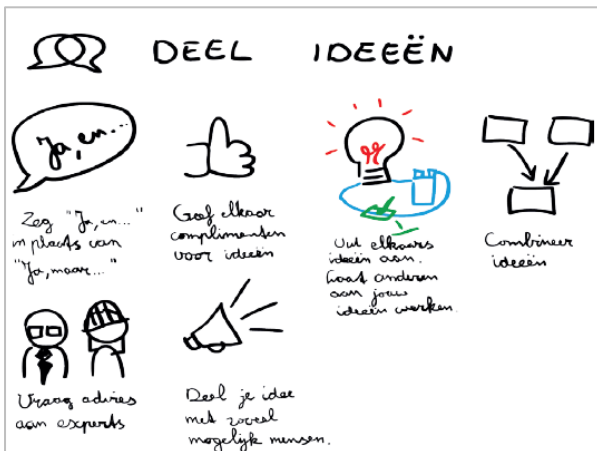 DEEL IDEEËN
Ja, en...
Zeg "Ja, en..."
in plaats van
"Ja, maar..."
Geef elkaar
complimenten
voor ideeën
Vul elkaars
ideeën aan.
Laat anderen
aan jouw
ideeën werken.
Combineer
ideeën
Vraag advies
aan experts
Deel je idee
met zoveel
mogelijk mensen.